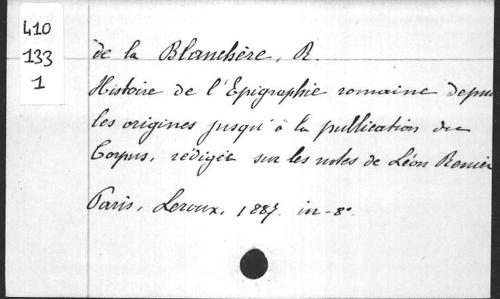 410
133
1
de la Blanchère, R.
Histoire de l'Epigraphie romaine depuis
les origines jusqu'à la publication du
Corpus, rédigée sur les notes de Léon Renier
Paris, Leroux, 1887. in-8°